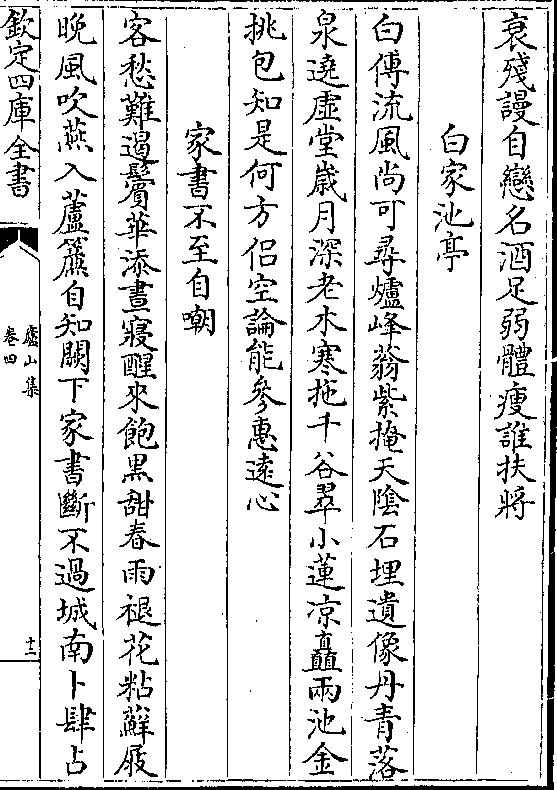 衰殘謾自戀名酒足弱體瘦誰扶將
白家池亭
白傅流風尚可尋爐峰蓊紫掩天陰石埋遺像丹青落
泉遶虛堂歲月深老木寒拖千谷翠小蓮凉矗兩池金
挑包知是何方侶空論能參惠遠心
家書不至自嘲
客愁難遏鬢華添晝寢醒來飽黑甜春雨褪花粘蘚屐
晚風吹燕入蘆簾自知闕下家書斷不過城南卜肆占
欽定四庫全書
廬山集
卷四
十二